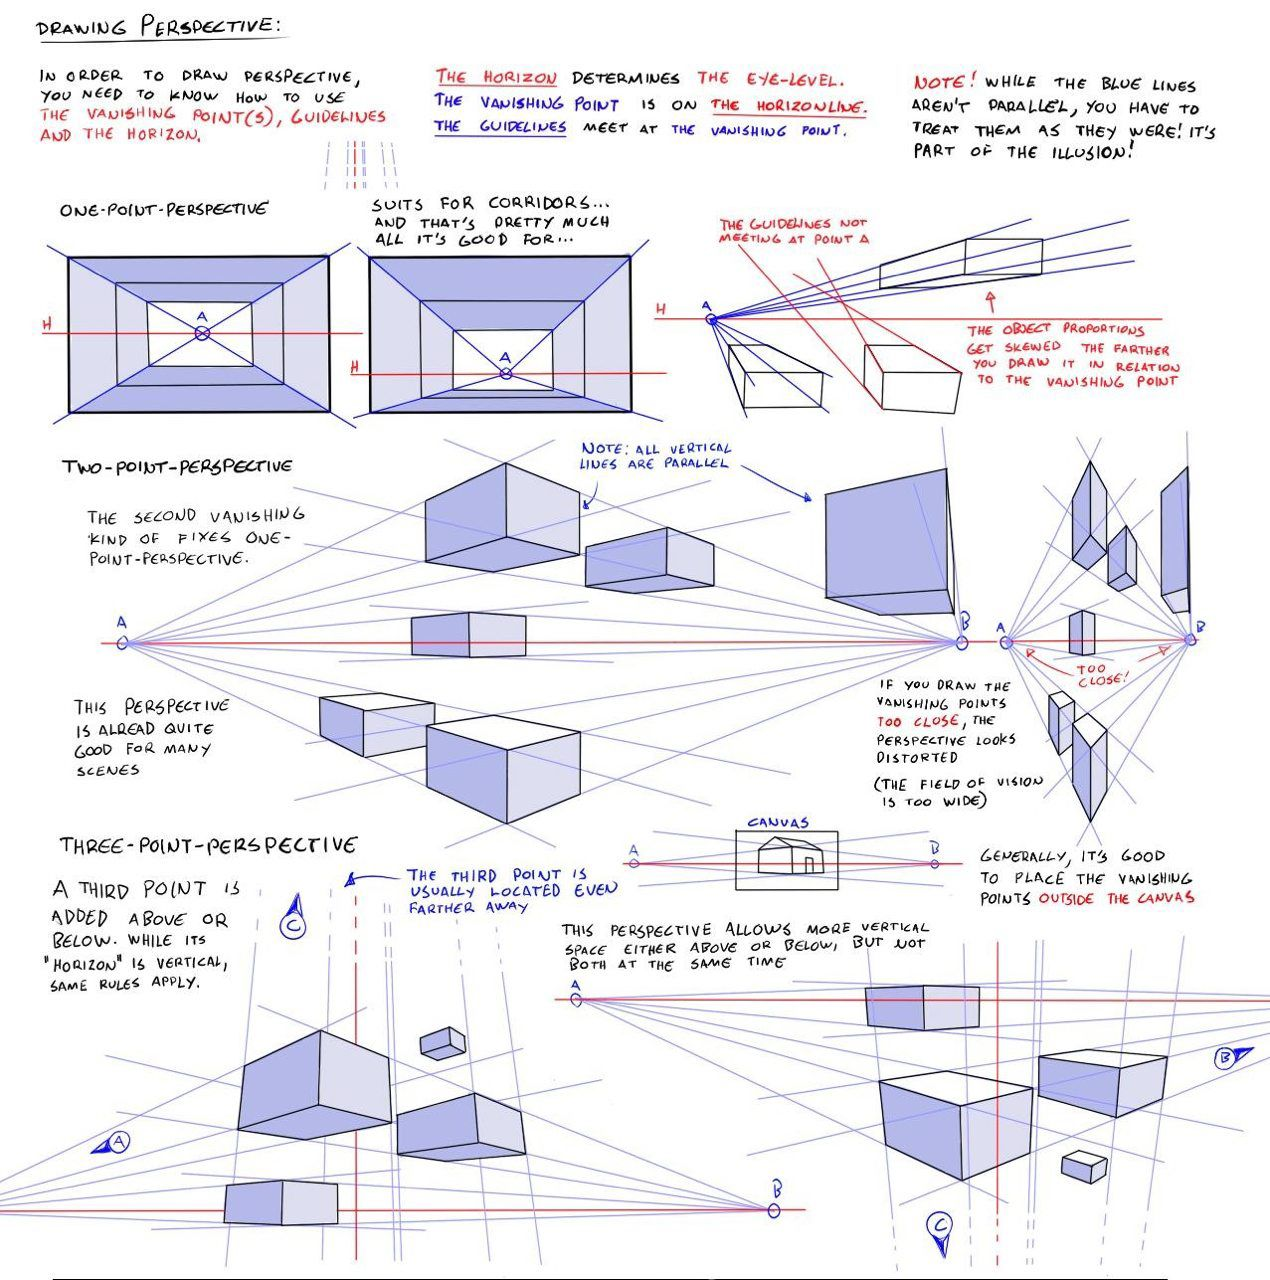 DRAWING PERSPECTIVE:
IN ORDER TO DRAW PERSPECTIVE,
YOU NEED TO KNOW HOW TO USE
THE VANISHING POINT(S), GUIDELINES
AND THE HORIZON.
THE HORIZON DETERMINES THE EYE-LEVEL.
THE VANISHING POINT IS ON THE HORIZONLINE.
THE GUIDELINES MEET AT THE VANISHING POINT.
NOTE! WHILE THE BLUE LINES
AREN'T PARALLEL, YOU HAVE TO
TREAT THEM AS THEY WERE! IT'S
PART OF THE ILLUSION!
ONE-POINT-PERSPECTIVE
SUITS FOR CORRIDORS...
AND THAT'S PRETTY MUCH
ALL IT'S GOOD FOR...
H
A
H
A
THE GUIDELINES NOT
MEETING AT POINT A
H
A
THE OBJECT PROPORTIONS
GET SKEWED THE FARTHER
YOU DRAW IT IN RELATION
TO THE VANISHING POINT
TWO-POINT-PERSPECTIVE
THE SECOND VANISHING
KIND OF FIXES ONE-
POINT-PERSPECTIVE.
NOTE: ALL VERTICAL
LINES ARE PARALLEL
A
B
A
B
TOO
CLOSE!
THIS PERSPECTIVE
IS ALREAD QUITE
GOOD FOR MANY
SCENES
IF YOU DRAW THE
VANISHING POINTS
TOO CLOSE, THE
PERSPECTIVE LOOKS
DISTORTED
(THE FIELD OF VISION
IS TOO WIDE)
CANVAS
A
B
GENERALLY, IT'S GOOD
TO PLACE THE VANISHING
POINTS OUTSIDE THE CANVAS
THREE-POINT-PERSPECTIVE
A THIRD POINT IS
ADDED ABOVE OR
BELOW. WHILE ITS
"HORIZON" IS VERTICAL,
SAME RULES APPLY.
C
THE THIRD POINT IS
USUALLY LOCATED EVEN
FARTHER AWAY
THIS PERSPECTIVE ALLOWS MORE VERTICAL
SPACE EITHER ABOVE OR BELOW, BUT NOT
BOTH AT THE SAME TIME
A
B
A
B
C